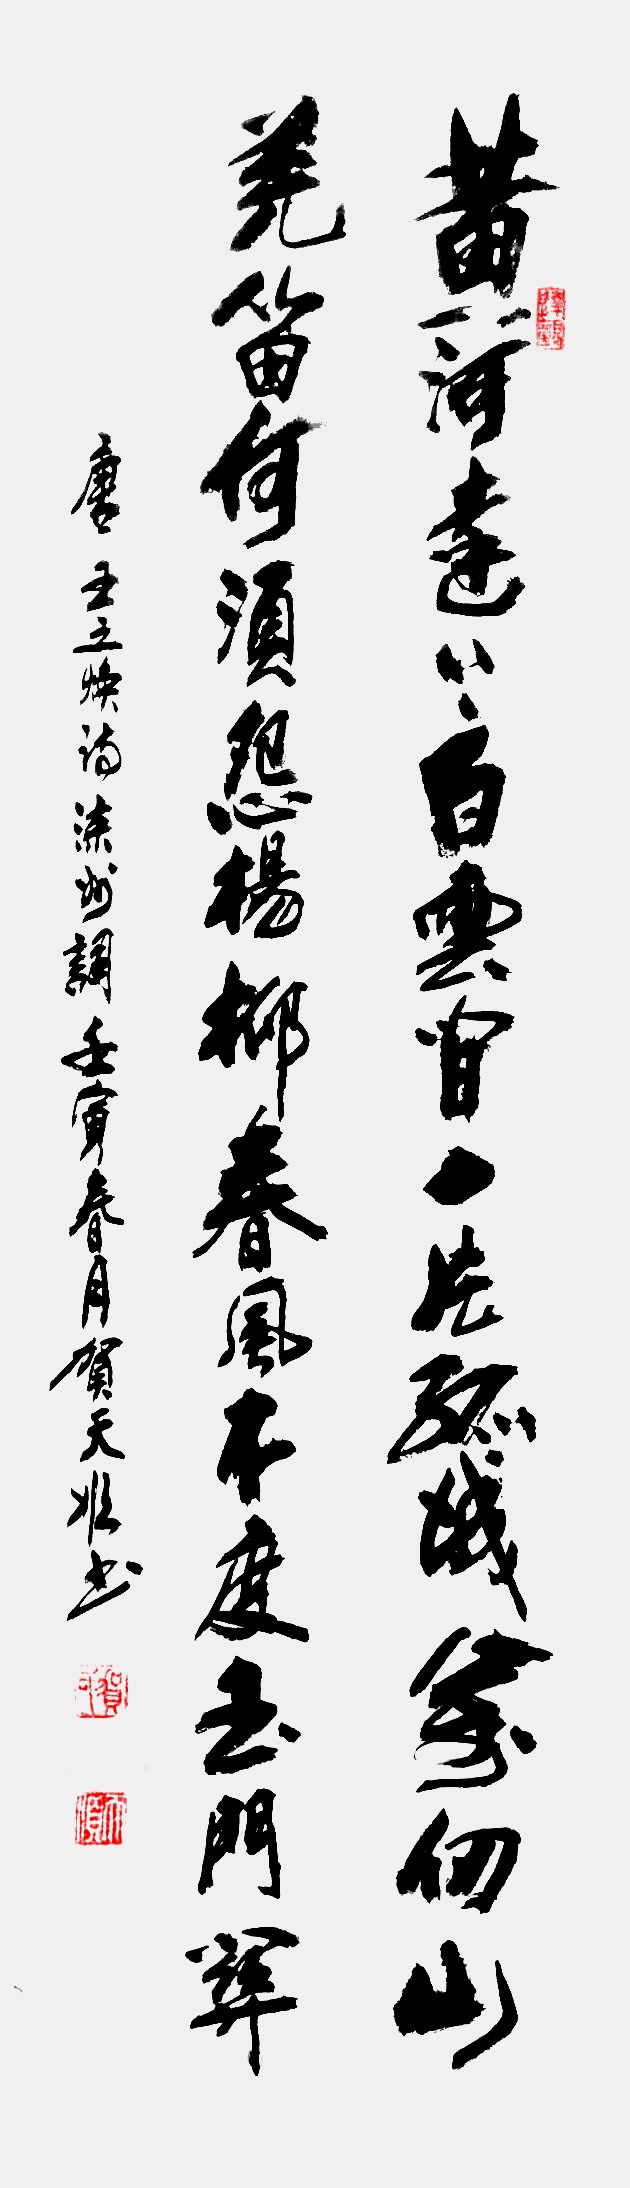 黃河遠上白雲間一片孤城萬仞山
羌笛何須怨楊柳春風不度玉門關
唐王之焕诗涼州調壬寅春月賀天順书